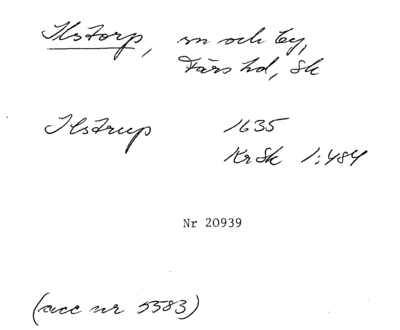 Ilstorp, sn och by,
Färs hd, Sk
Ilstrup 1635
KrSk 1:484
Nr 20939
(acc nr 5583)